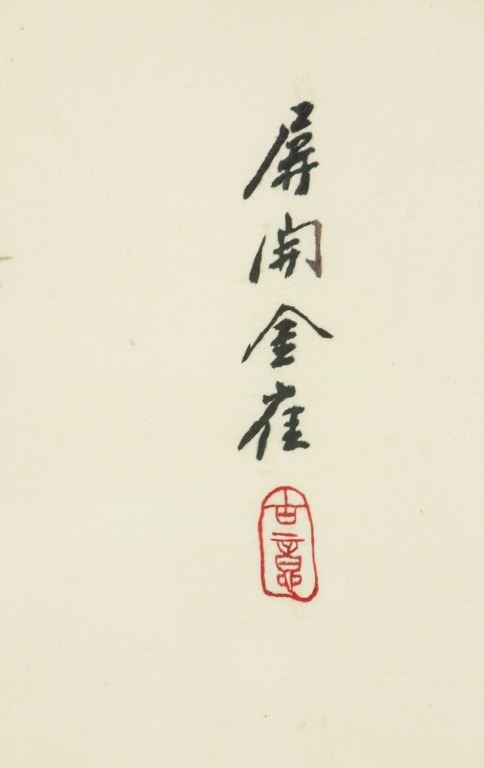 屏開金雀
古意